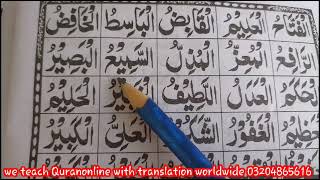 الْفَتَّاحُ الْعَلِيْمُ الْقَابِضُ الْبَاسِطُ الْخَافِضُ
الرَّافِعُ الْمُعِزُّ الْمُذِلُّ السَّمِيْعُ الْبَصِيْرُ
الْعَدْلُ اللَّطِيْفُ الْحَلِيْمُ
الْغَفُوْرُ الشَّكُوْرُ الْعَلِيُّ الْكَبِيْرُ
we teach Quranonline with translation worldwide,03204865616